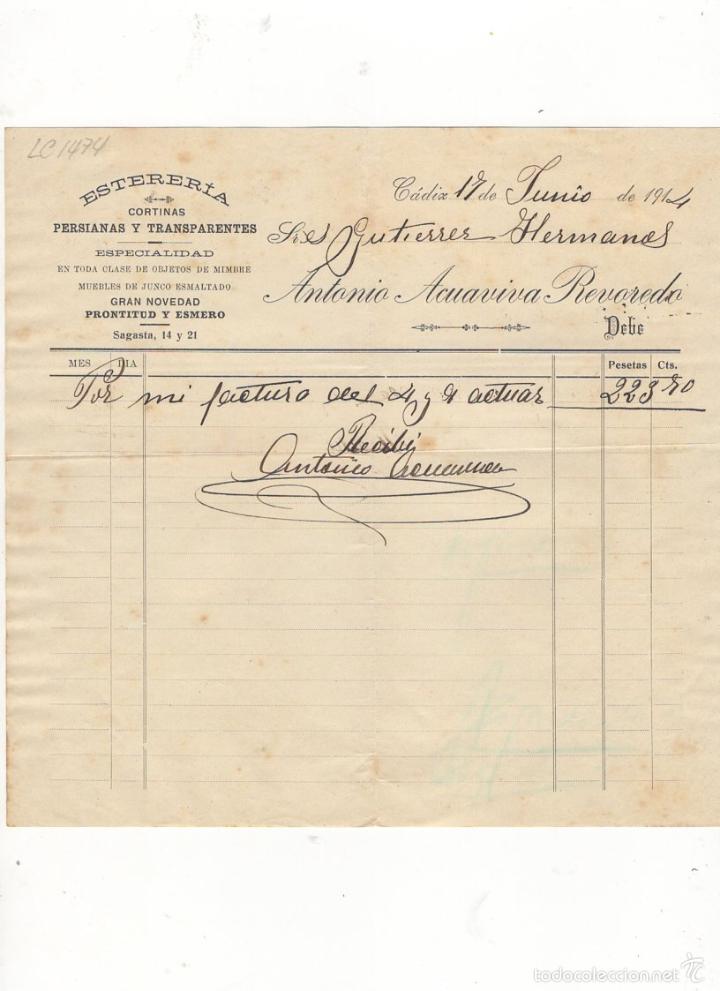 LC1474
ESTERERÍA
CORTINAS
PERSIANAS Y TRANSPARENTES
ESPECIALIDAD
EN TODA CLASE DE OBJETOS DE MIMBRE
MUEBLES DE JUNCO ESMALTADO
GRAN NOVEDAD
PRONTITUD Y ESMERO
Sagasta, 14 y 21
Cádiz 17 de Junio de 1914
Sres Gutierrez Hermanos
Antonio Acuaviva Revoredo
Debe
MES DIA Pesetas Cts.
Por mi factura del 4 y 9 actual 223 70
Recibí
Antonio Acuaviva
todocoleccion.net